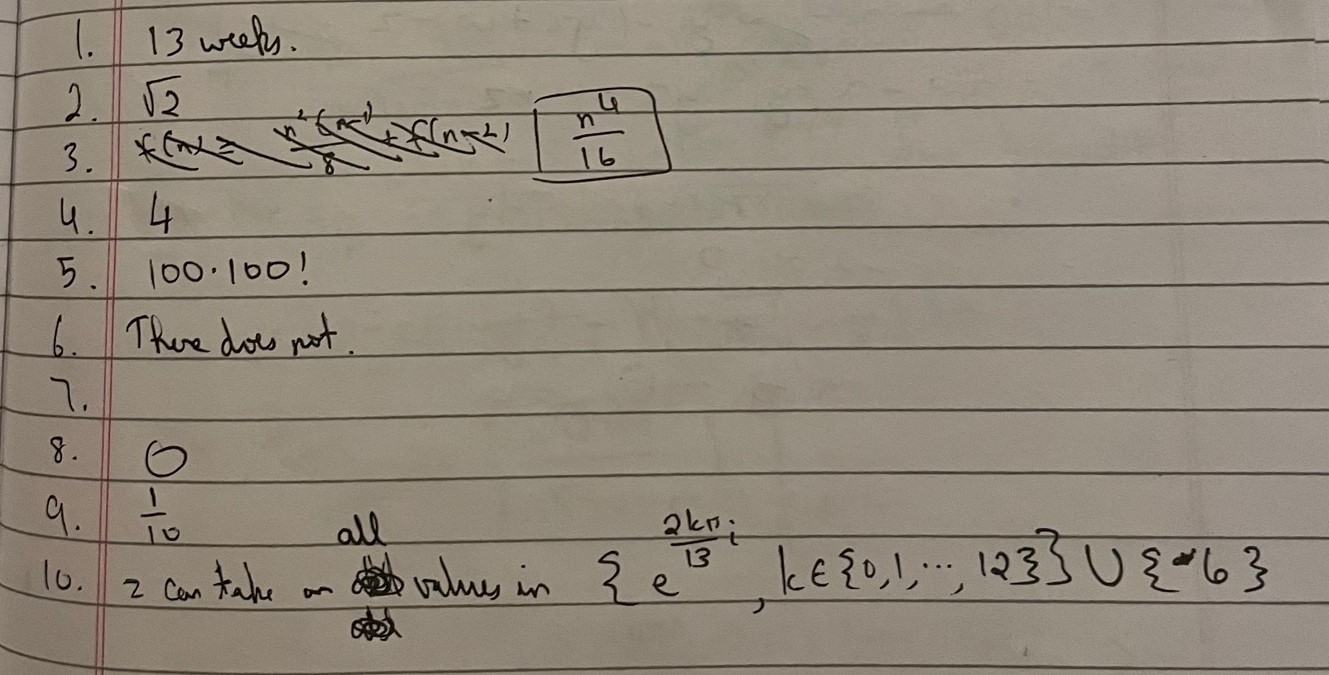 1. 13 weeks.
2. √2
3. f(n) = n²(n-1)/8 + f(n-2) n⁴/16
4. 4
5. 100·100!
6. There does not.
7.
8. 0
9. 1/10
all
10. z can take on values in { e^(2kπi/13), k∈{0,1,…,12}} ∪ {-6}